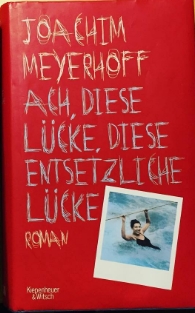 JOACHIM
MEYERHOFF
ACH, DIESE
LÜCKE, DIESE
ENTSETZLICHE
LÜCKE
ROMAN
Kiepenheuer
& Witsch